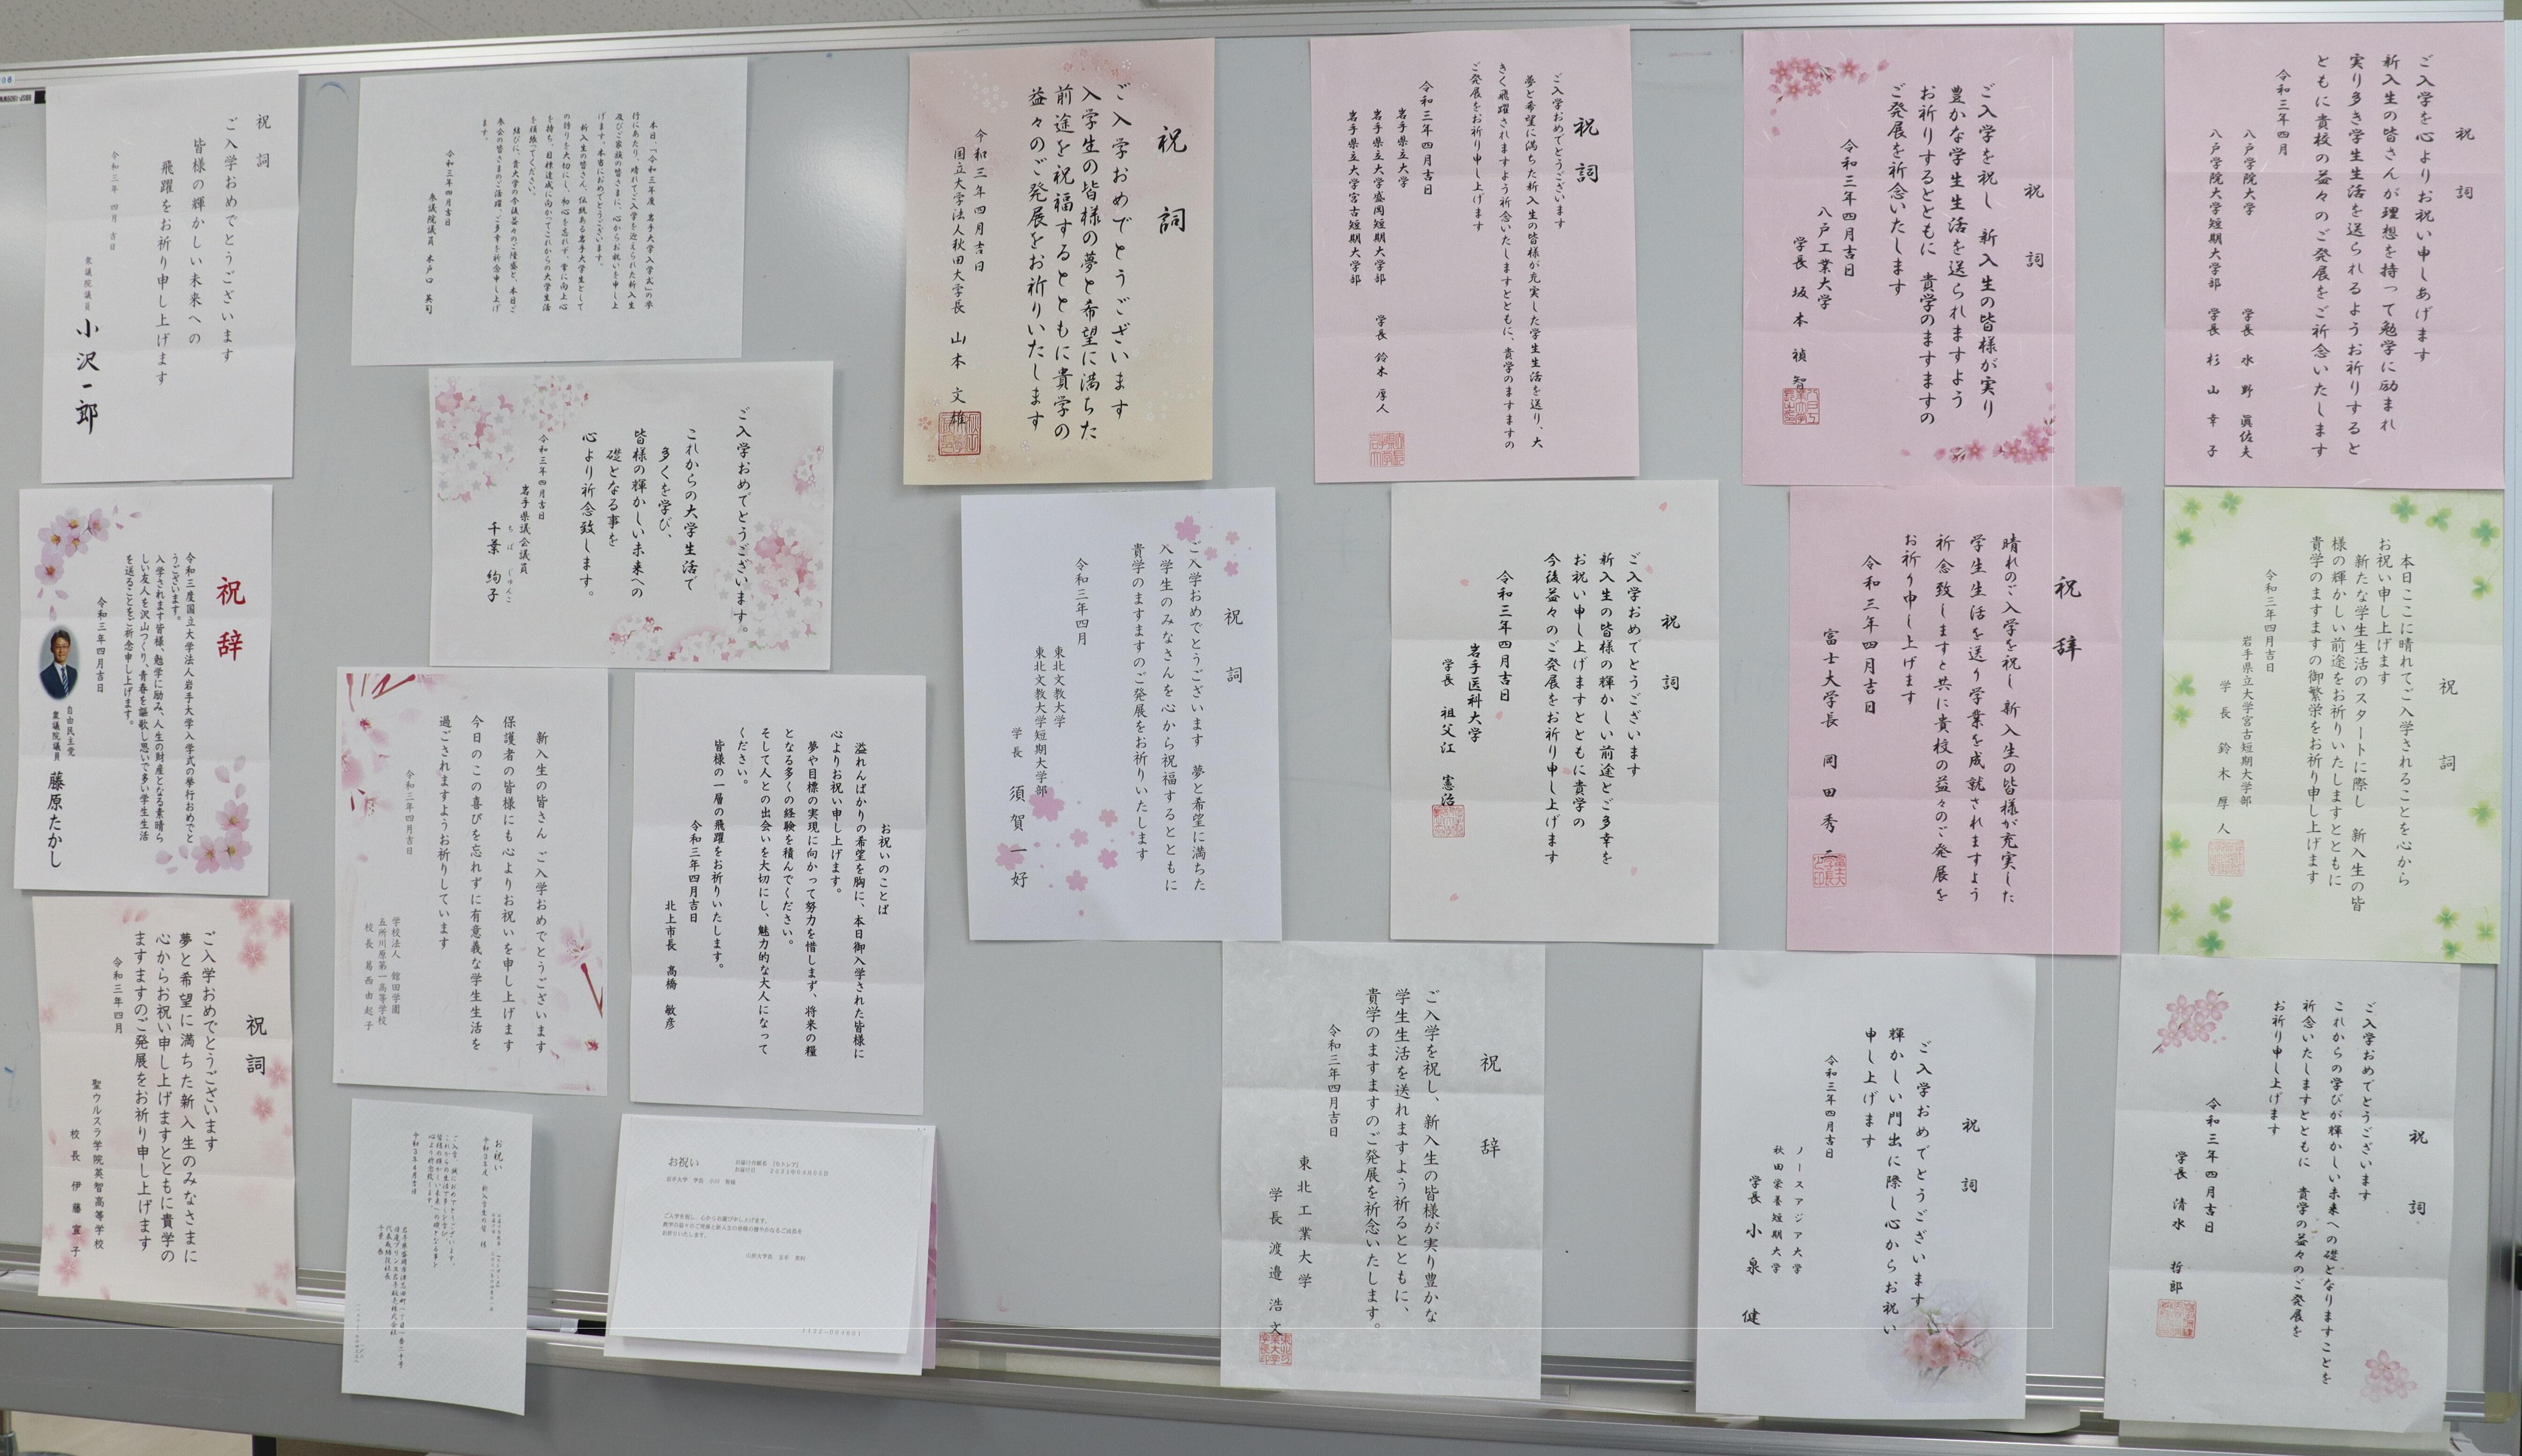 祝 詞
ご入学を心よりお祝い申しあげます
新入生の皆さんが理想を持って勉学に励まれ
実り多き学生生活を送られるようお祈りすると
ともに貴校の益々のご発展をご祈念いたします
令和三年四月
八戸学院大学 学長 水野 眞佐夫
八戸学院大学短期大学部 学長 杉山 幸子
祝 詞
ご入学を祝し 新入生の皆様が実り
豊かな学生生活を送られますよう
お祈りするとともに 貴学のますますの
ご発展を祈念いたします
令和三年四月吉日
八戸工業大学
学長 坂本 禎智
祝 詞
ご入学おめでとうございます
夢と希望に満ちた新入生の皆様が充実した学生生活を送り、大
きく飛躍されますよう祈念いたしますとともに、貴学のますますの
ご発展をお祈り申し上げます
令和三年四月吉日
岩手県立大学
岩手県立大学盛岡短期大学部 学長 鈴木 厚人
岩手県立大学宮古短期大学部
祝 詞
ご入学おめでとうございます
入学生の皆様の夢と希望に満ちた
前途を祝福するとともに貴学の
益々のご発展をお祈りいたします
令和三年四月吉日
国立大学法人秋田大学長 山本 文雄
本日、「令和三年度 岩手大学入学式」の挙
行にあたり、晴れてご入学を迎えられた新入生
及びご家族の皆さまに、心からお祝いを申し上
げます。本当におめでとうございます。
新入生の皆さん、伝統ある岩手大学生として
の誇りを大切にし、初心を忘れず、常に向上心
を持ち、目標達成に向かってこれからの大学生活
を頑張ってください。
結びに、貴大学の今後益々のご隆盛と、本日ご
参会の皆さまのご活躍、ご多幸を祈念申し上げ
ます。
令和三年四月吉日
参議院議員 木戸口 英司
祝 詞
ご入学おめでとうございます
皆様の輝かしい未来への
飛躍をお祈り申し上げます
令和三年 四月 吉日
衆議院議員 小沢一郎
祝 詞
本日ここに晴れてご入学されることを心から
お祝い申し上げます
新たな学生生活のスタートに際し 新入生の皆
様の輝かしい前途をお祈りいたしますとともに
貴学のますますの御繁栄をお祈り申し上げます
令和三年四月吉日
岩手県立大学宮古短期大学部
学長 鈴木 厚人
祝 辞
晴れのご入学を祝し 新入生の皆様が充実した
学生生活を送り学業を成就されますよう
祈念致しますと共に貴校の益々のご発展を
お祈り申し上げます
令和三年四月吉日
富士大学長 岡田 秀二
祝 詞
ご入学おめでとうございます
新入生の皆様の輝かしい前途とご多幸を
お祝い申し上げますとともに貴学の
今後益々のご発展をお祈り申し上げます
令和三年四月吉日
岩手医科大学
学長 祖父江 憲治
祝 詞
ご入学おめでとうございます 夢と希望に満ちた
入学生のみなさんを心から祝福するとともに
貴学のますますのご発展をお祈りいたします
令和三年四月
東北文教大学
東北文教大学短期大学部
学長 須賀 一好
ご入学おめでとうございます。
これからの大学生活で
多くを学び、
皆様の輝かしい未来への
礎となる事を
心より祈念致します。
令和三年四月吉日
岩手県議会議員
千葉 絢子
ちば じゅんこ
祝 辞
令和三度国立大学法人岩手大学入学式の挙行おめでと
うございます。
入学されます皆様、勉学に励み、人生の財産となる素晴ら
しい友人を沢山つくり、青春を謳歌し思いで多い学生生活
を送ることをご祈念申し上げます。
令和三年四月吉日
自由民主党
衆議院議員 藤原たかし
新入生の皆さん ご入学おめでとうございます
保護者の皆様にも心よりお祝いを申し上げます
今日のこの喜びを忘れずに有意義な学生生活を
過ごされますようお祈りしています
令和三年四月吉日
学校法人 舘田学園
五所川原第一高等学校
校長 葛西由起子
お祝いのことば
溢れんばかりの希望を胸に、本日御入学された皆様に
心よりお祝い申し上げます。
夢や目標の実現に向かって努力を惜しまず、将来の糧
となる多くの経験を積んでください。
そして人との出会いを大切にし、魅力的な大人になって
ください。
皆様の一層の飛躍をお祈りいたします。
令和三年四月吉日
北上市長 髙橋 敏彦
祝 詞
ご入学おめでとうございます
夢と希望に満ちた新入生のみなさまに
心からお祝い申し上げますとともに貴学の
ますますのご発展をお祈り申し上げます
令和三年四月
聖ウルスラ学院英智高等学校
校長 伊藤 宣子
お祝い
令和3年度 新入学生の皆 様
ご入学、誠におめでとうございます。
これからの生活で多くを学び、
皆様の輝かしい未来への礎となる事を
心より祈念致します。
令和3年4月吉日
お祝い
お届け台紙名 「カトレア」
お届け日 2021年04月05日
岩手大学 学長 小川 智様
ご入学を祝し、心からお慶び申し上げます。
貴学の益々のご発展と新入生の皆様の健やかなるご成長を
お祈りいたします。
山形大学長 玉手 英利
1122-004601
祝 辞
ご入学を祝し、新入生の皆様が実り豊かな
学生生活を送れますよう祈るとともに、
貴学のますますのご発展を祈念いたします。
令和三年四月吉日
東北工業大学
学長 渡邉 浩文
祝 詞
ご入学おめでとうございます
輝かしい門出に際し心からお祝い
申し上げます
令和三年四月吉日
ノースアジア大学
秋田栄養短期大学
学長 小泉 健
祝 詞
ご入学おめでとうございます
これからの学びが輝かしい未来への礎となりますことを
祈念いたしますとともに 貴学の益々のご発展を
お祈り申し上げます
令和三年四月吉日
学長 清水 哲郎